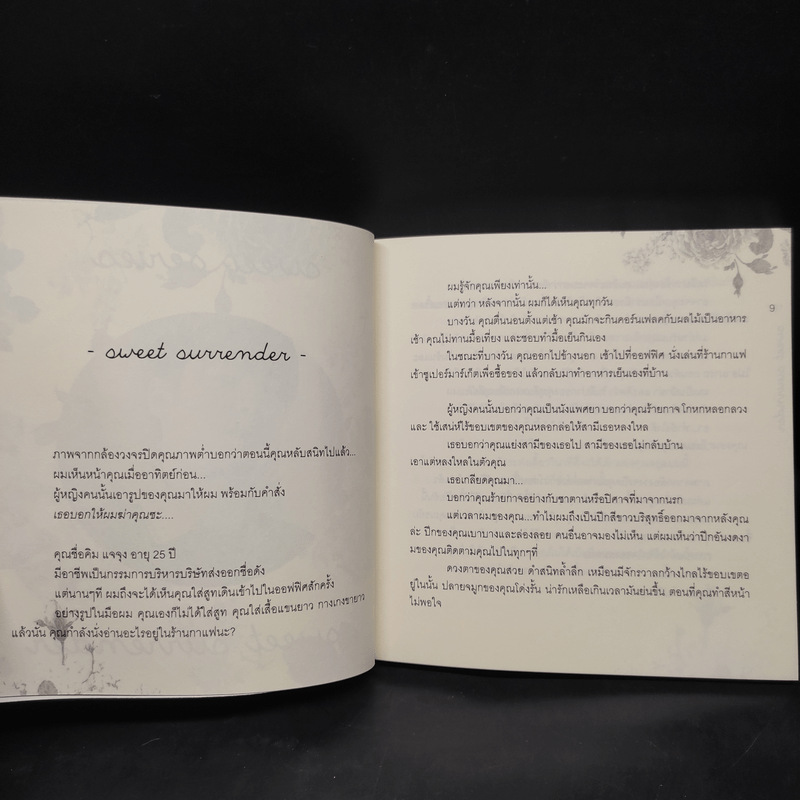 - sweet surrender -
ภาพจากกล้องวงจรปิดคุณภาพต่ำบอกว่าตอนนี้คุณหลับสนิทไปแล้ว...
ผมเห็นหน้าคุณเมื่ออาทิตย์ก่อน...
ผู้หญิงคนนั้นเอารูปของคุณมาให้ผม พร้อมกับคำสั่ง
เธอบอกให้ผมฆ่าคุณซะ....
คุณชื่อคิม แจจุง อายุ 25 ปี
มีอาชีพเป็นกรรมการบริหารบริษัทส่งออกชื่อดัง
แต่นานๆที ผมถึงจะได้เห็นคุณใส่สูทเดินเข้าไปในออฟฟิศสักครั้ง
อย่างรูปในมือผม คุณเองก็ไม่ได้ใส่สูท คุณใส่เสื้อแขนยาว กางเกงขายาว
แล้วนั่น คุณกำลังนั่งอ่านอะไรอยู่ในร้านกาแฟนะ?
9
ผมรู้จักคุณเพียงเท่านั้น...
แต่ทว่า หลังจากนั้น ผมก็ได้เห็นคุณทุกวัน
บางวัน คุณตื่นนอนตั้งแต่เช้า คุณมักจะกินคอร์นเฟลคกับผลไม้เป็นอาหาร
เช้า คุณไม่ทานมื้อเที่ยง และชอบทำมื้อเย็นกินเอง
ในขณะที่บางวัน คุณออกไปข้างนอก เข้าไปที่ออฟฟิศ นั่งเล่นที่ร้านกาแฟ
เข้าซูเปอร์มาร์เก็ตเพื่อซื้อของ แล้วกลับมาทำอาหารเย็นเองที่บ้าน
ผู้หญิงคนนั้นบอกว่าคุณเป็นนังแพศยา บอกว่าคุณร้ายกาจ โกหกหลอกลวง
และ ใช้เสน่ห์ไร้ขอบเขตของคุณหลอกล่อให้สามีเธอหลงใหล
เธอบอกว่าคุณแย่งสามีของเธอไป สามีของเธอไม่กลับบ้าน
เอาแต่หลงใหลในตัวคุณ
เธอเกลียดคุณมา...
บอกว่าคุณร้ายกาจอย่างกับซาตานหรือปีศาจที่มาจากนรก
แต่เวลาผมมองคุณ...ทำไมผมถึงเป็นปีกสีขาวบริสุทธิ์ออกมาจากหลังคุณ
ล่ะ ปีกของคุณเบาบางและล่องลอย คนอื่นอาจมองไม่เห็น แต่ผมเห็นว่าปีกอันงดงา
มของคุณติดตามคุณไปในทุกๆที่
ดวงตาของคุณสวย ดำสนิทล้ำลึก เหมือนมีจักรวาลกว้างไกลไร้ขอบเขตอ
ยู่ในนั้น ปลายจมูกของคุณโด่งรั้น น่ารักเหลือเกินเวลามันย่นขึ้น ตอนที่คุณทำสีหน้า
ไม่พอใจ